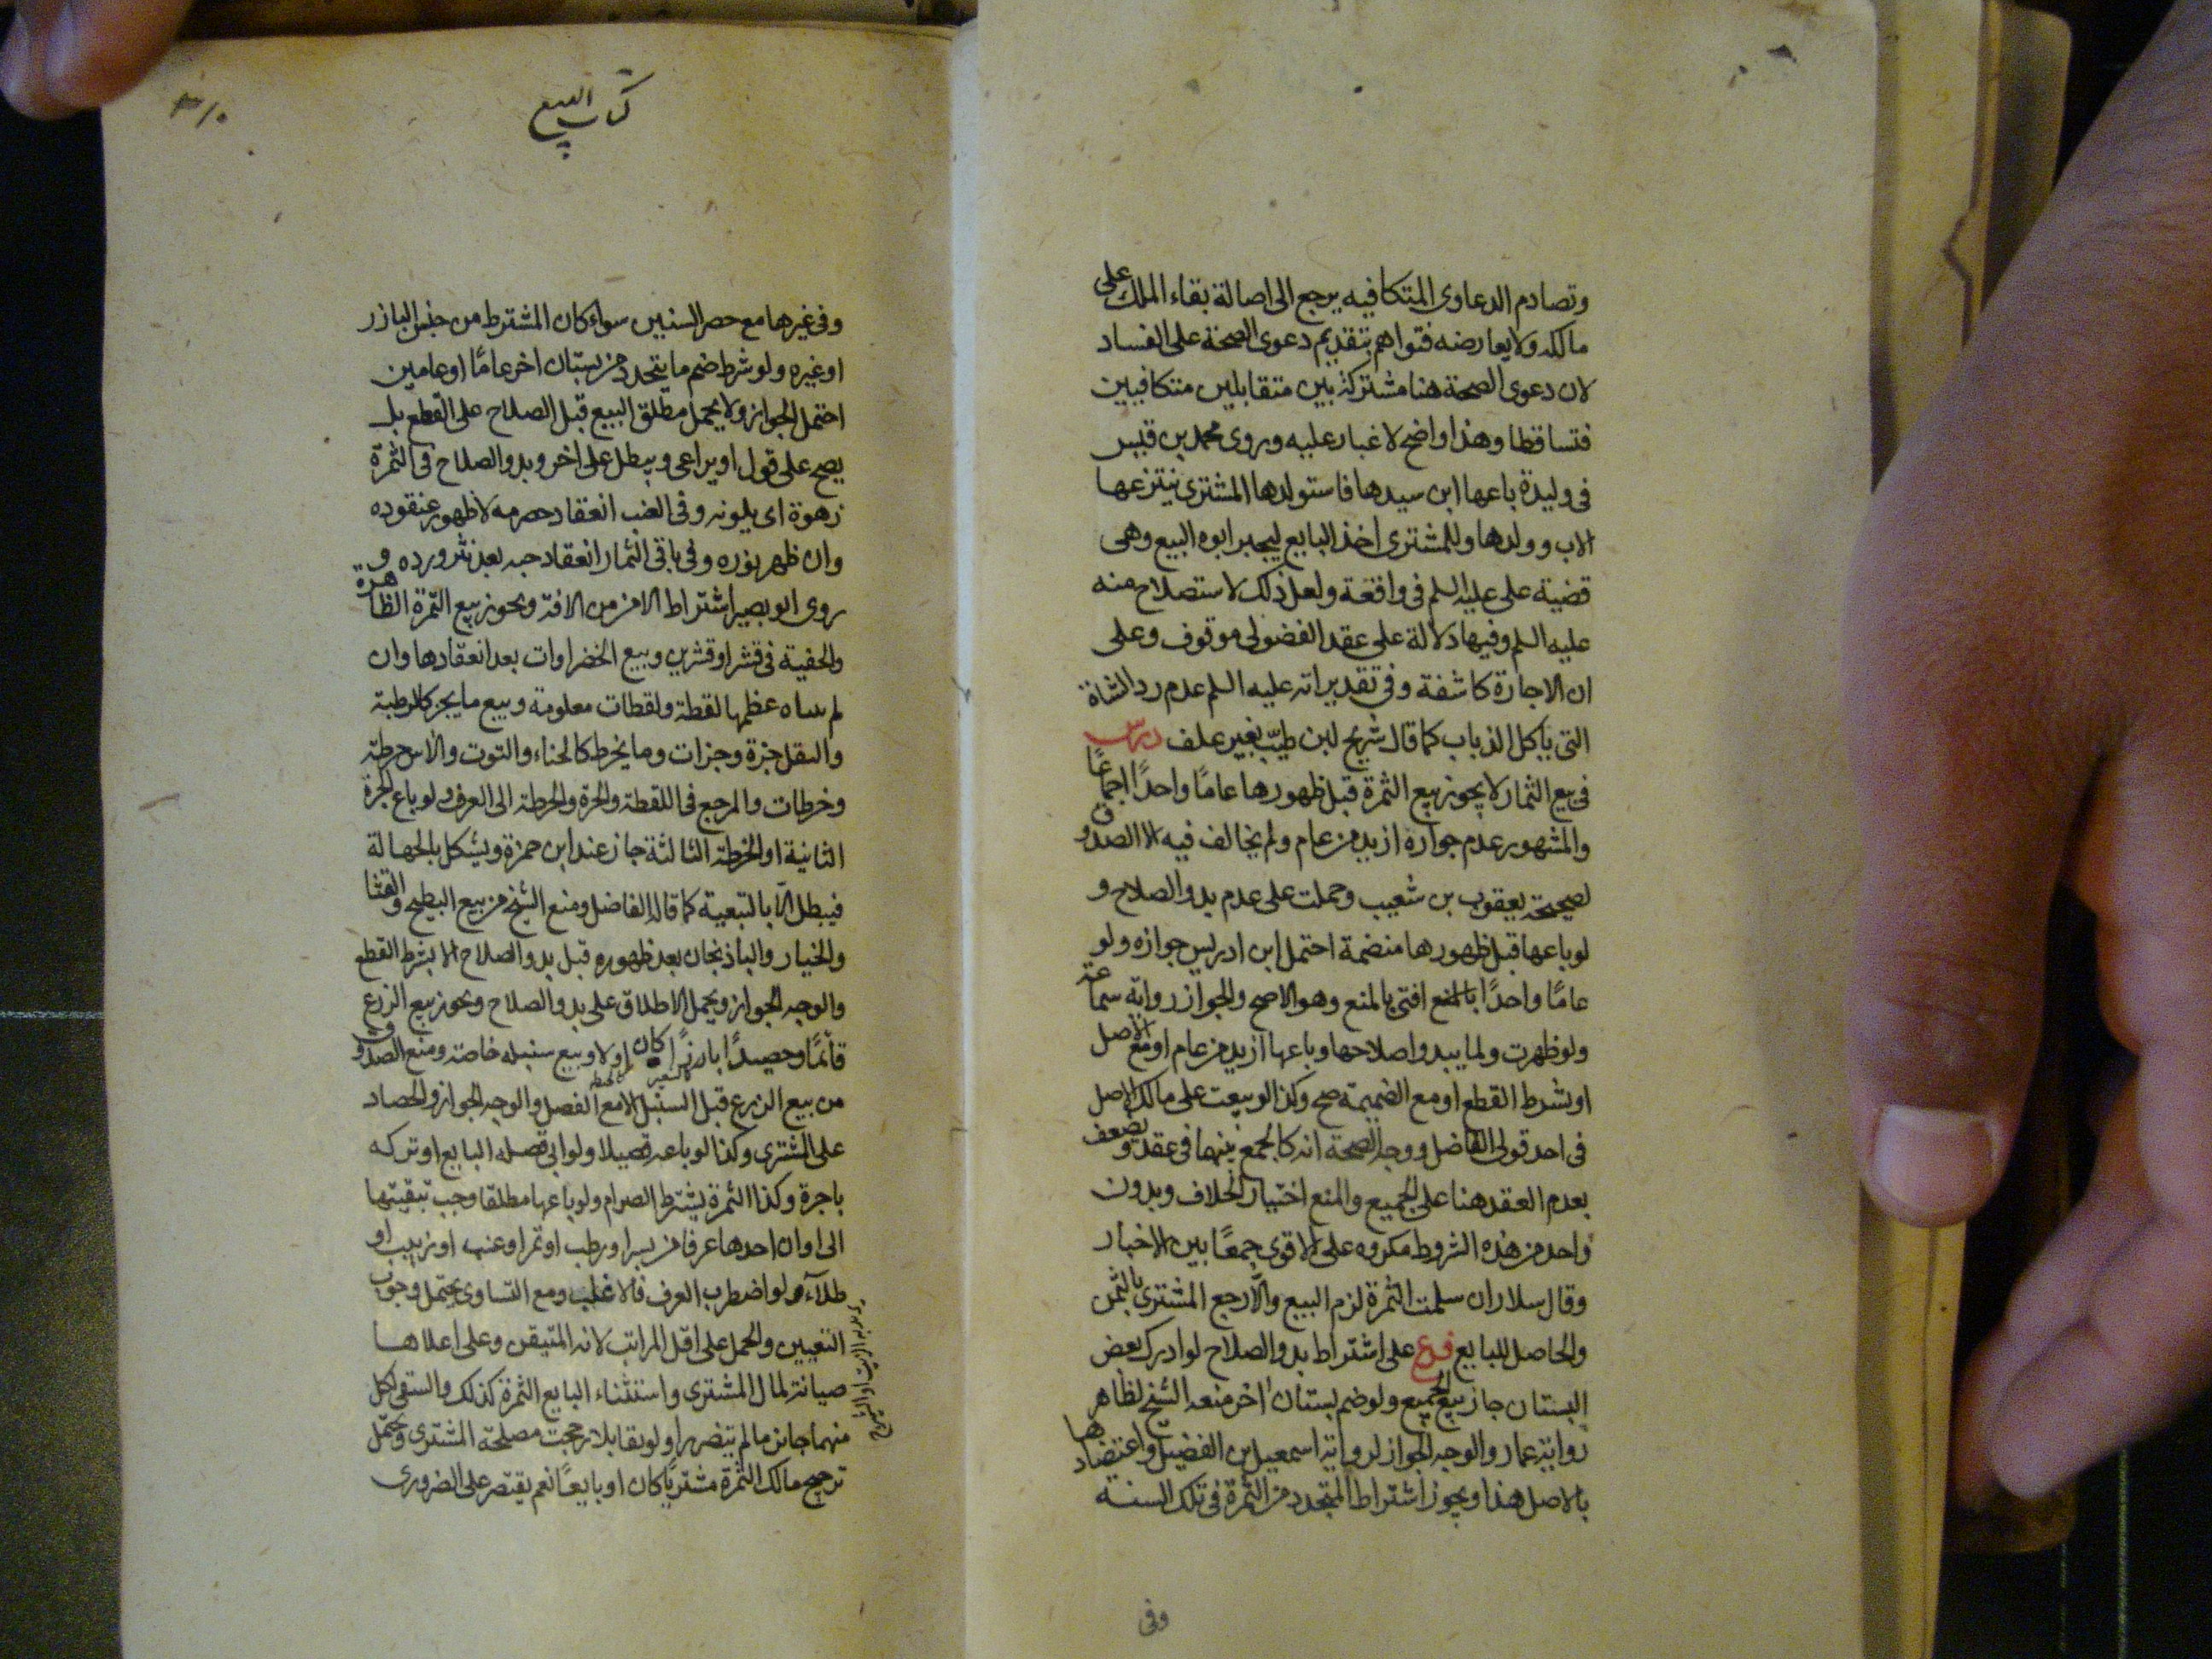 وتصادم الدعاوى المتكافيه يرجع الى اصالة بقاء الملك على
مالكه ولا يعارضه فتواهم بتقديم دعوى الصحة على الفساد
لان دعوى الصحة هنا مشتركة بين متقابلين متكافيين
فتساقطا وهذا واضح لا غبار عليه وروى محمد بن قيس
فى وليدة باعها ابن سيدها فاستولدها المشترى ينتزعها
الاب وولدها وللمشترى اخذ البايع ليجبر ابوه البيع وهى
قضية على عليه السلم فى واقعة ولعل ذلك لاستصلاح منه
عليه السلم وفيها دلالة على عقد الفضولى موقوف وعلى
ان الاجازة كاشفة وفى تقديراته عليه السلم عدم رد الشاة
التى ياكل الذباب كما قال شريح لبن طيّب بغير علف درس
فى بيع الثمار لا يجوز بيع الثمرة قبل ظهورها عامًا واحدًا اجماعًا
والمشهور عدم جوازه ازيد من عام ولم يخالف فيه الا الصدوق
لصحيحة يعقوب بن شعيب وحملت على عدم بدو الصلاح و
لو باعها قبل ظهورها منضمة احتمل ابن ادريس جوازه ولو
عامًا واحدًا بالمنع افتى بالمنع وهو الاصح والجواز رواية سماعة
ولو ظهرت ولما يبدو اصلاحها وباعها ازيد من عام او مع الاصل
او بشرط القطع او مع الضميمة صح وكذا لو بيعت على مالك الاصل
فى احد قولى الفاضل ووجه الصحة انه كالجمع بينهما فى عقد ويضعف
بعدم العقد هنا على الجميع والمنع اختيار الخلاف وبدون
واحد من هذه الشروط مكروه على الاقوى جمعًا بين الاخبار
وقال سلار ان سلمت الثمرة لزم البيع والّا رجع المشترى بالثمن
والحاصل للبايع فرع على اشتراط بدو الصلاح لو ادرك بعض
البستان جاز بيع الجميع ولو ضم بستان اخر منعه الشيخ لظاهر
رواية عمار والوجه الجواز لرواية اسمعيل بن الفضيل واعتضادها
بالاصل هذا ويجوز اشتراط المتجدد من الثمرة فى تلك السنه
وفى
كتاب البيع
٣١٠
وفى غيرها مع حصر السنين سواء كان المشترط من جنس البازر
او غيره ولو شرط ضم ما يتجدد من بستان اخر عامًا او عامين
احتمل الجواز ولا يحمل مطلق البيع قبل الصلاح على القطع بل
يصح على قول او يراعى ويبطل على اخر وبدو الصلاح فى الثمرة
زهوة اى يلونه وفى العنب انعقاد حصرمه لا ظهور عنقوده
وان ظهر نوره وفى باقى الثمار انعقاد حبه بعد نثر ورده و
روى ابو بصير اشتراط الامن من الافة ويجوز بيع الثمرة الظاهرة
والخفية فى قشر او قشرين وبيع الخضراوات بعد انعقادها وان
لم يتناه عظمها لقطة ولقطات معلومة وبيع ما يجز كالرطبة
والبقل جزة وجزات وما يخرط كالحناء والتوت والاس خرطة
وخرطات والمرجع فى اللقطة والجزة والخرطة الى العرف ولو باع الجزة
الثانية او الخرطة الثالثة جاز عند ابن حمزة ويشكل بالجهالة
فيبطل الّا بالتبعية كما قاله الفاضل ومنع الشيخ من بيع البطيخ والقثا
والخيار والباذنجان بعد ظهوره قبل بدو الصلاح الا بشرط القطع
والوجه الجواز ويحمل الاطلاق على بدو الصلاح ويجوز بيع الزرع
قائمًا وحصيدًا بارزًا كان او لا وبيع سنبله خاصة ومنع الصدوق
كالشعير كالحنطة
من بيع الزرع قبل السنبل الا مع الفصل والوجه الجواز والحصاد
على المشترى وكذا لو باعه قصيلا ولو ابى قصله البايع او تركه
باجرة وكذا الثمرة يشترط الصرام ولو باعها مطلقا وجب تبقيتها
الى اوان اخدها عرفا من بسر او رطب او تمر او عنب او زبيب او
طلاء ولو اضطرب العرف فالاغلب ومع التساوى يحتمل وجوب
التعيين والحمل على اقل المراتب لانه المتيقن وعلى اعلاها
صيانة لمال المشترى واستثناء البايع الثمرة كذلك والسقى لكل
منهما جائز ما لم يتضرر او لو تقابلا رجحت مصلحة المشترى ويحتمل
ترجيح مالك الثمرة مشتريًا كان او بايعًا نعم يقتصر على الضرورى